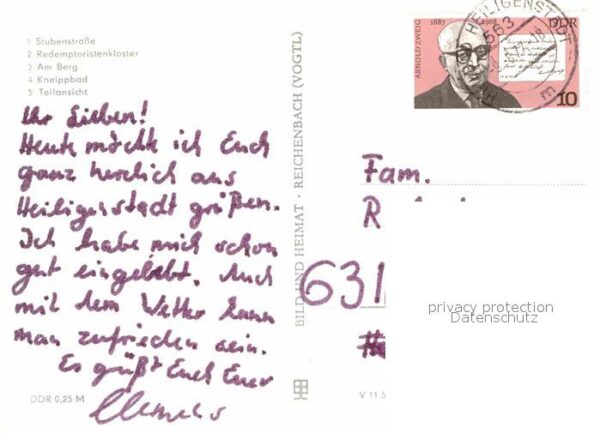 1 Stubenstraße
2 Redemptoristenkloster
3 Am Berg
4 Kneippbad
5 Teilansicht
Ihr Lieben!
Heute möchte ich Euch
ganz herzlich aus
Heiligenstadt grüßen.
Ich habe mich schon
gut eingelebt. Auch
mit dem Wetter kann
man zufrieden sein.
Es grüßt Euch Euer
DDR 0,25 M
BILD UND HEIMAT · REICHENBACH (VOGTL)
V 11 5
ARNOLD ZWEIG
1887 1968
DDR
10
HEILIGENSTADT
563
Fam.
R
631
privacy protection
Datenschutz